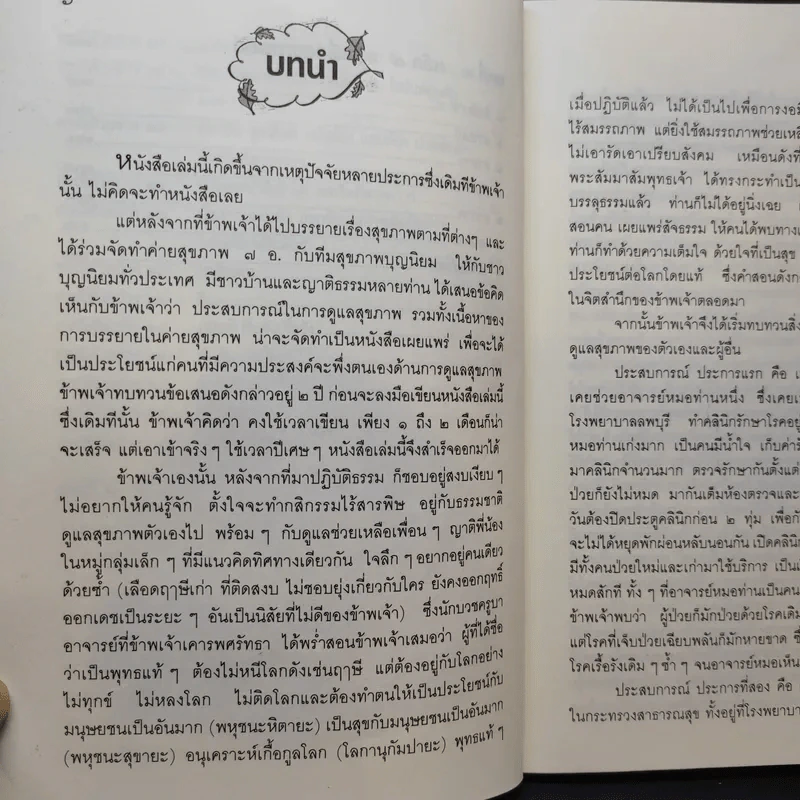 บทนำ
หนังสือเล่มนี้เกิดขึ้นจากเหตุปัจจัยหลายประการซึ่งเดิมทีข้าพเจ้า
นั้น ไม่คิดจะทำหนังสือเลย
แต่หลังจากที่ข้าพเจ้าได้ไปบรรยายเรื่องสุขภาพตามที่ต่างๆ และ
ได้ร่วมจัดทำค่ายสุขภาพ ๗ อ. กับทีมสุขภาพบุญนิยม ให้กับชาว
บุญนิยมทั่วประเทศ มีชาวบ้านและญาติธรรมหลายท่าน ได้เสนอข้อคิด
เห็นกับข้าพเจ้าว่า ประสบการณ์ในการดูแลสุขภาพ รวมทั้งเนื้อหาของ
การบรรยายในค่ายสุขภาพ น่าจะจัดทำเป็นหนังสือเผยแพร่ เพื่อจะได้
เป็นประโยชน์แก่คนที่มีความประสงค์จะพึ่งตนเองด้านการดูแลสุขภาพ
ข้าพเจ้าทบทวนข้อเสนอดังกล่าวอยู่ ๒ ปี ก่อนจะลงมือเขียนหนังสือเล่มนี้
ซึ่งเดิมทีนั้น ข้าพเจ้าคิดว่า คงใช้เวลาเขียน เพียง ๑ ถึง ๒ เดือนก็น่า
จะเสร็จ แต่เอาเข้าจริงๆ ใช้เวลาปีเศษๆ หนังสือเล่มนี้จึงสำเร็จออกมาได้
ข้าพเจ้าเองนั้น หลังจากที่มาปฏิบัติธรรม ก็ชอบอยู่สงบเงียบๆ
ไม่อยากให้คนรู้จัก ตั้งใจจะทำกสิกรรมไร้สารพิษ อยู่กับธรรมชาติ
ดูแลสุขภาพตัวเองไป พร้อมๆ กับดูแลช่วยเหลือเพื่อนๆ ญาติพี่น้อง
ในหมู่กลุ่มเล็กๆ ที่มีแนวคิดทิศทางเดียวกัน ใจลึกๆอยากอยู่คนเดียว
ด้วยซ้ำ (เลือดฤๅษีเก่า ที่ติดสงบ ไม่ชอบยุ่งเกี่ยวกับใคร ยังคงออกฤทธิ์
ออกเดชเป็นระยะๆ อันเป็นนิสัยที่ไม่ดีของข้าพเจ้า) ซึ่งนักบวชครูบา
อาจารย์ที่ข้าพเจ้าเคารพศรัทธา ได้พร่ำสอนข้าพเจ้าเสมอว่า ผู้ที่ได้ชื่อ
ว่าเป็นพุทธแท้ๆ ต้องไม่หนีโลกดังเช่นฤๅษี แต่ต้องอยู่กับโลกอย่าง
ไม่ทุกข์ ไม่หลงโลก ไม่ติดโลกและต้องทำตนให้เป็นประโยชน์กับ
มนุษยชนเป็นอันมาก (พหุชนะหิตายะ) เป็นสุขกับมนุษยชนเป็นอันมาก
(พหุชนะสุขายะ) อนุเคราะห์เกื้อกูลโลก (โลกานุกัมปายะ) พุทธแท้ๆ
เมื่อปฏิบัติแล้ว ไม่ได้เป็นไปเพื่อการงอมื
ไร้สมรรถภาพ แต่ยิ่งใช้สมรรถภาพช่วยเหลื
ไม่เอารัดเอาเปรียบสังคม เหมือนดังที่
พระสัมมาสัมพุทธเจ้า ได้ทรงกระทำเป็น
บรรลุธรรมแล้ว ท่านก็ไม่ได้อยู่นิ่งเฉย
สอนคน เผยแพร่สัจธรรม ให้คนได้พบทาง
ท่านก็ทำด้วยความเต็มใจ ด้วยใจที่เป็นสุข
ประโยชน์ต่อโลกโดยแท้ ซึ่งคำสอนดังก
ในจิตสำนึกของข้าพเจ้าตลอดมา
จากนั้นข้าพเจ้าจึงได้เริ่มทบทวนสิ่
ดูแลสุขภาพของตัวเองและผู้อื่น
ประสบการณ์ ประการแรก คือ
เคยช่วยอาจารย์หมอท่านหนึ่ง ซึ่งเคย
โรงพยาบาลลพบุรี ทำคลินิกรักษาโรคอยู่
หมอท่านเก่งมาก เป็นคนมีน้ำใจ เก็บค่ารั
มาคลินิกจำนวนมาก ตรวจรักษากันตั้งแต่
ป่วยก็ยังไม่หมด มากันเต็มห้องตรวจและ
วันต้องปิดประตูคลินิกก่อน ๒ ทุ่ม เพื่อ
จะไม่ได้หยุดพักผ่อนหลับนอนกัน เปิดคลินิก
มีทั้งคนป่วยใหม่และเก่ามาใช้บริการ เป็น
หมดสักที ทั้งๆ ที่อาจารย์หมอท่านเป็นคน
ข้าพเจ้าพบว่า ผู้ป่วยก็มักป่วยด้วยโรคเดิม
แต่โรคที่เจ็บป่วยเฉียบพลันก็มักหายขาด ซึ่
โรคเรื้อรังเดิมๆซ้ำๆ จนอาจารย์หมอเห็น
ประสบการณ์ ประการที่สอง คือ
ในกระทรวงสาธารณสุข ทั้งอยู่ที่โรงพยาบา